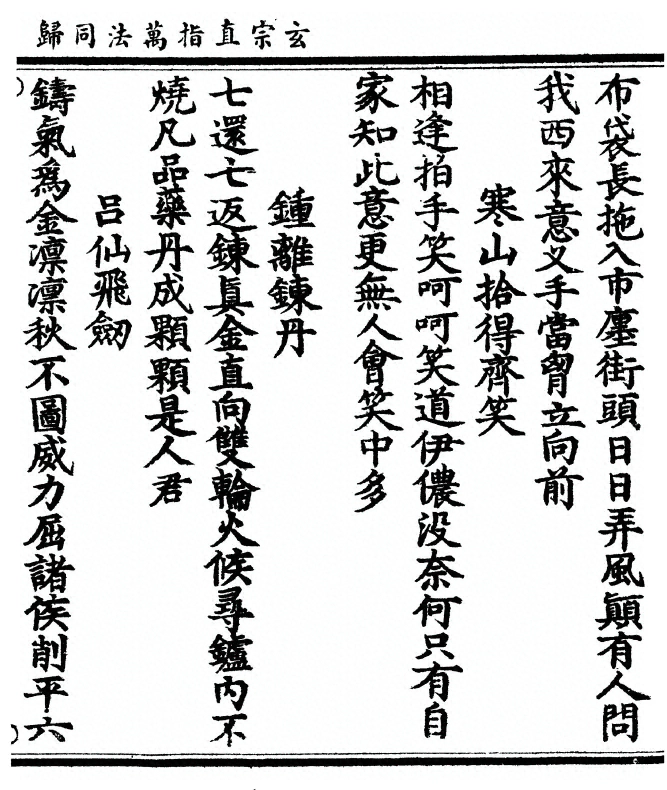 玄宗直指萬法同歸
布袋長拖入市廛街頭日日弄風顚有人問
我西來意叉手當胷立向前
寒山拾得齊笑
相逢拍手笑呵呵笑道伊儂没奈何只有自
家知此意更無人會笑中多
鍾離鍊丹
七還七返鍊眞金直向雙輪火候尋鑪內不
燒凡品藥丹成顆顆是人君
呂仙飛劒
鑄氣爲金凛凛秋不圖威力屈諸侯削平六